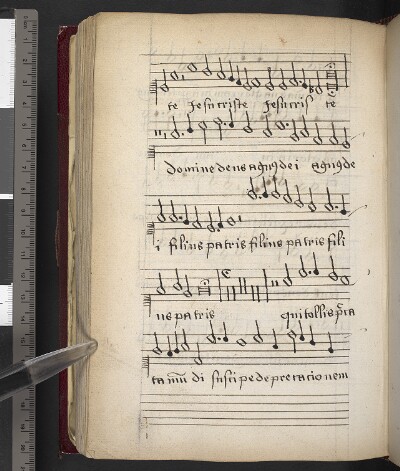 te Jesu criste Jesu cris te
domine deus agnꝰ dei agnꝰ de
i filius patris filius patris fili
us patris qui tollis
di suscipe deprecationem